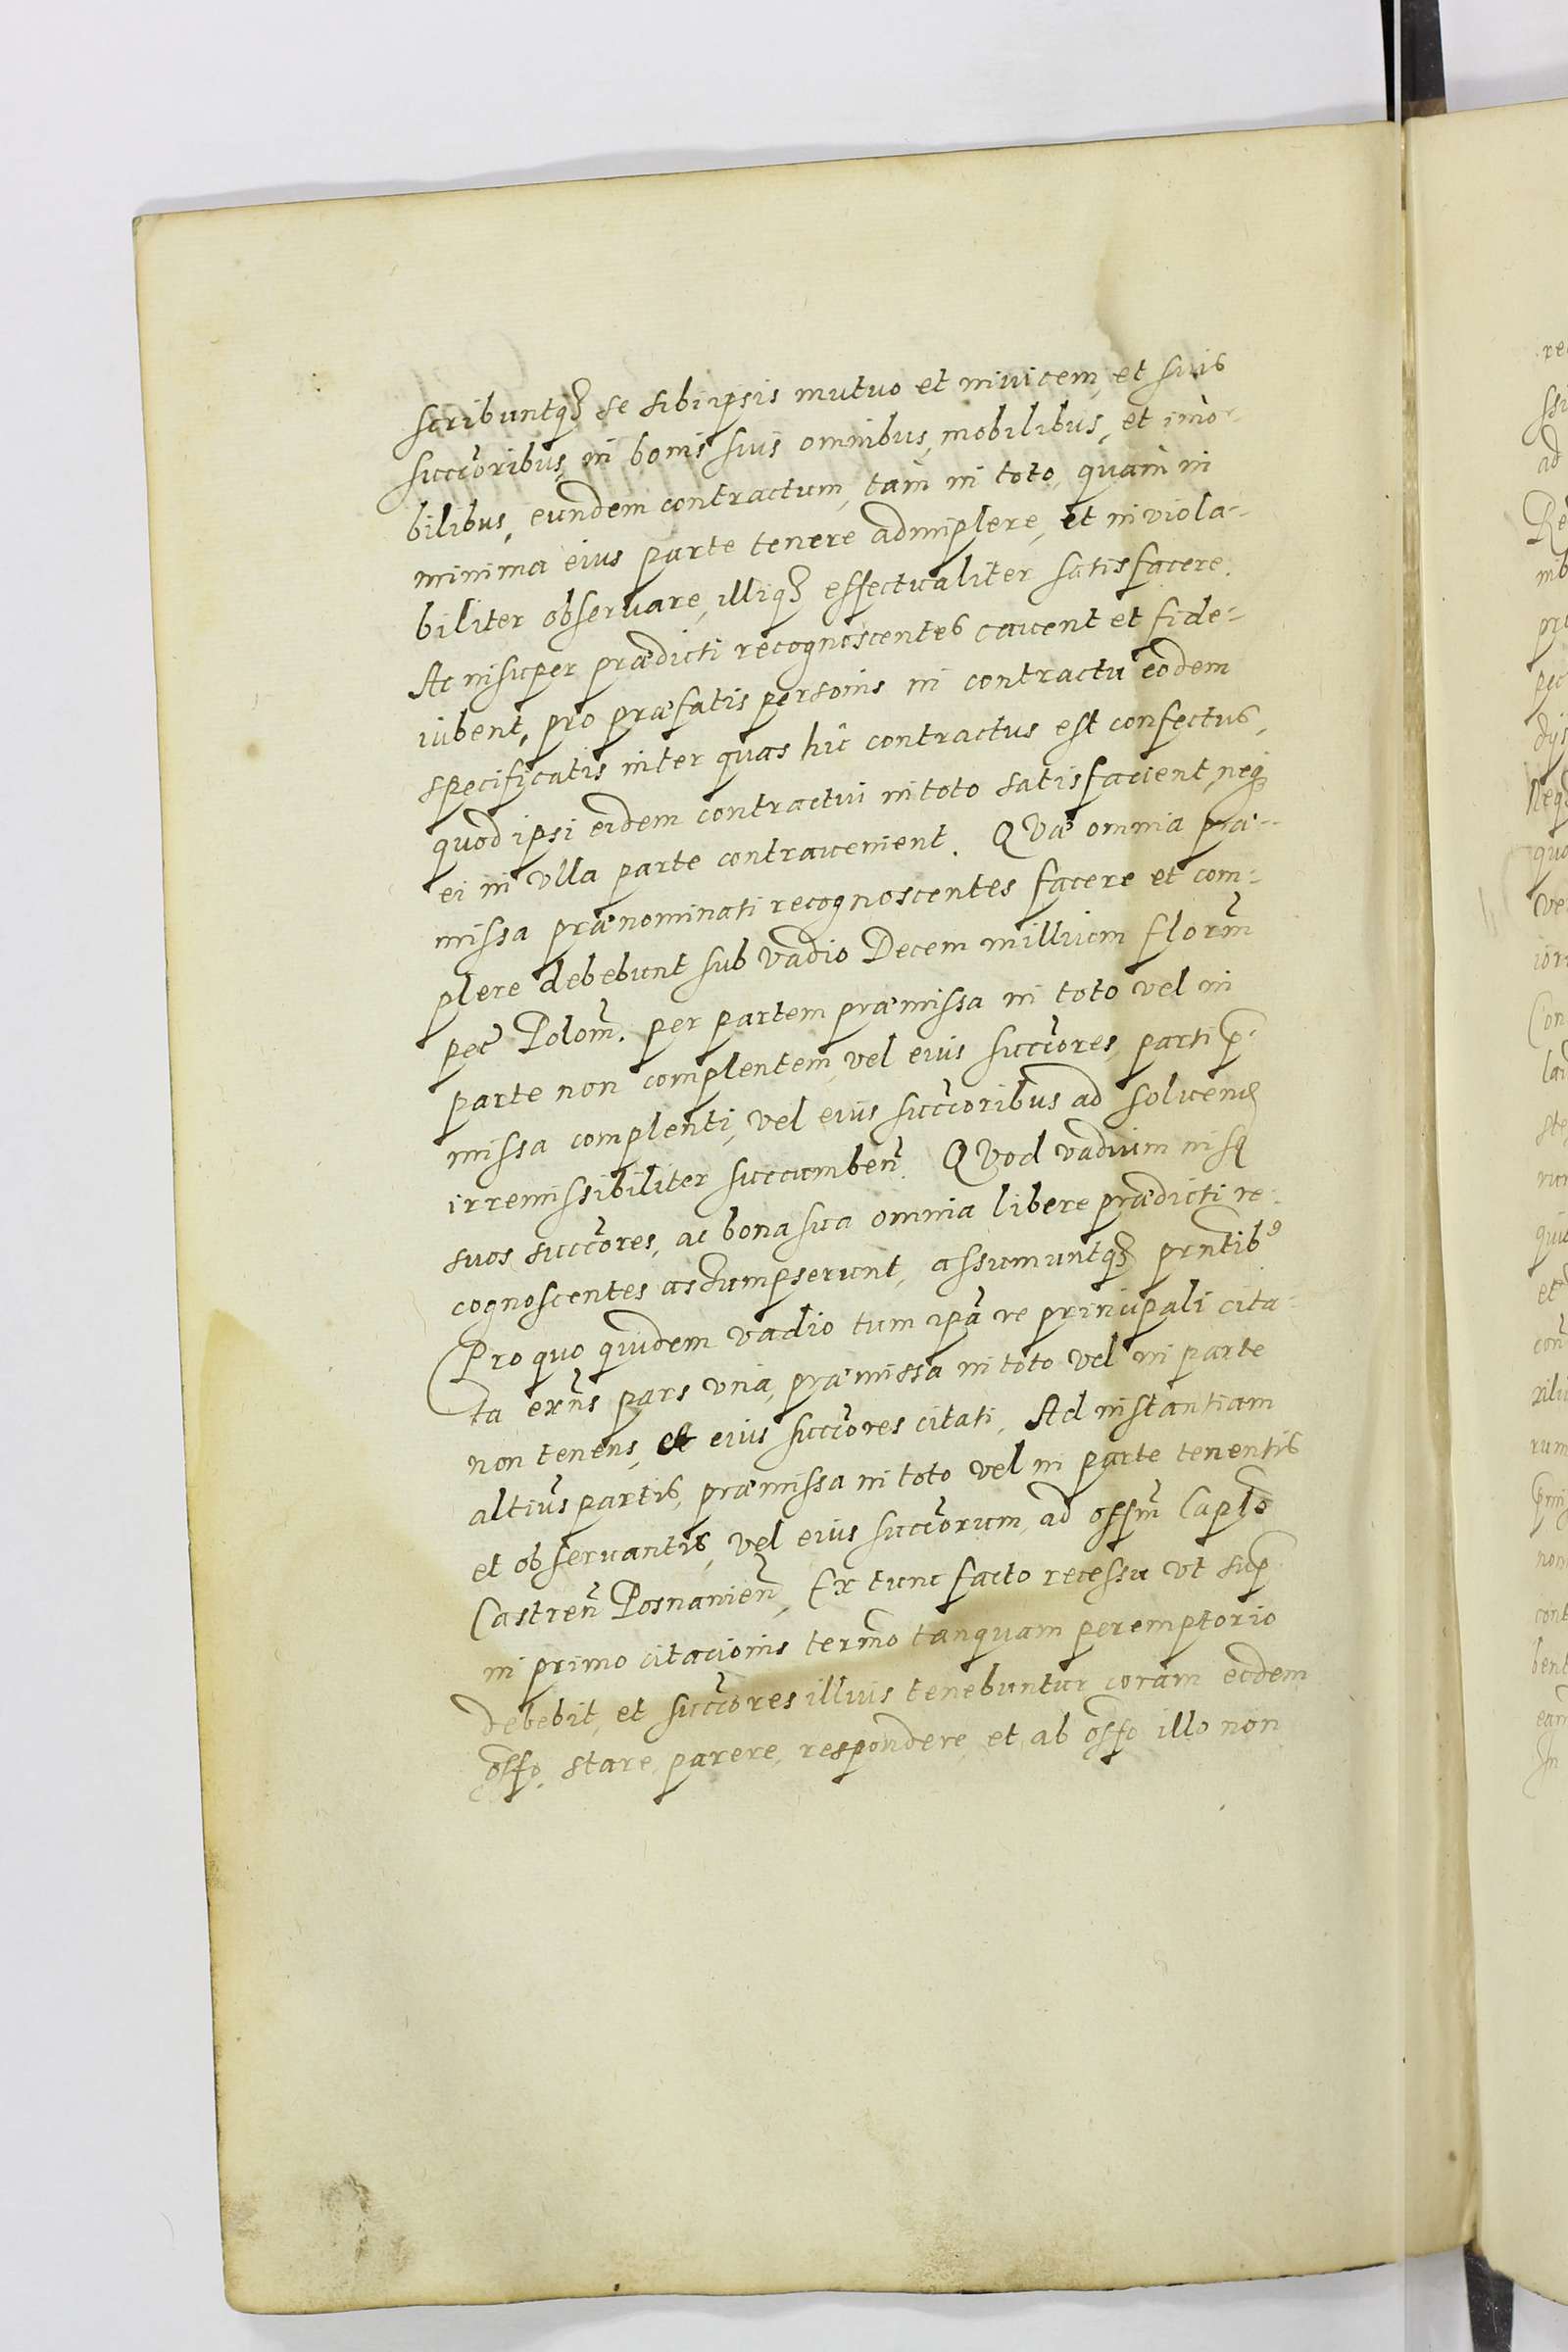 scribuntq₃ se sibi ipsis mutuo et inuicem, et suis
succōribus, in bonis suis omnibus, mobilibus, et im̄o-
bilibus, eundem contractum, tàm in toto, quàm in
minima eius parte tenere adimplere, et inviola-
biliter obseruare, illiq₃ effectualiter satisfacere.
Ac insuper prædicti recognoscentes cauent et fide-
iubent, pro præfatis personis in contractu eodem
specificatis inter quas hic contractus est confectus,
quod ipsi eidem contractui in toto satisfacient, neq₃
ei in vlla parte contrauenient. Quæ omnia præ-
missa prænominati recognoscentes facere et com-
plere debebunt sub vadio Decem millium florm̄
pec̄ Polom̄. per partem præmissa in toto vel in
parte non complentem, vel eius succōres, parti p̄-
missa complenti, vel eius succōribus ad soluend
irremissibiliter succumben̄. Quod vadium in se
suos succōres, ac bona sua omnia libere prædicti re-
cognoscentes assumpserunt, assumuntq₃ pn̄tibꝰ
Pro quo quidem vadio tum ipā re principali cita-
ta exn̄s pars vna, præmissa in toto vel in parte
non tenens, et eius succōres citati, Ad instantiam
altius partis, præmissa in toto vel in parte tenentis
et obseruantis, vel eius succōrum, ad offm̄ Capło
Castren̄ Posnanien̄, Ex tunc facto recessu vt sup̄
in primo citacionis termo tanquam peremptorio
debebit, et succōres illius tenebuntur coram eodem
offo. stare, parere, respondere, et ab offo illo non